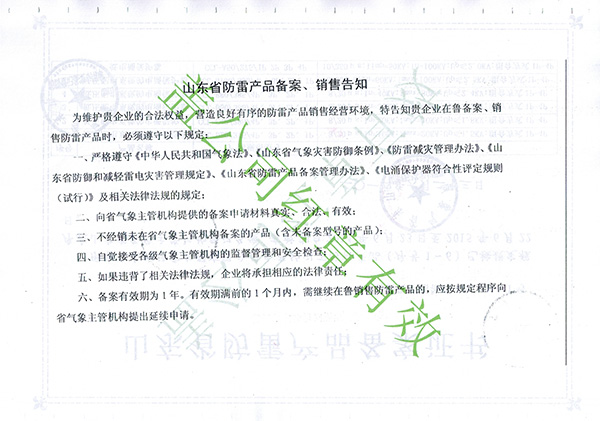 山东省防雷产品备案、销售告知
为维护贵企业的合法权益，营造良好有序的防雷产品销售经营环境，特告知贵企业在鲁备案、销
售防雷产品时，必须遵守以下规定：
一、严格遵守《中华人民共和国气象法》、《山东省气象灾害防御条例》、《防雷减灾管理办法》、《山
东省防御和减轻雷电灾害管理规定》、《山东省防雷产品备案管理办法》、《电涌保护器符合性评定规则
（试行）》及相关法律法规的规定；
二、向省气象主管机构提供的备案申请材料真实、合法、有效；
三、不经销未在省气象主管机构备案的产品（含未备案型号的产品）；
四、自觉接受各级气象主管机构的监督管理和安全检查；
五、如果违背了相关法律法规，企业将承担相应的法律责任；
六、备案有效期为1年。有效期满前的1个月内，需继续在鲁销售防雷产品的，应按规定程序向
省气象主管机构提出延续申请。
盖公司红章有效
山东省防雷产品备案证书